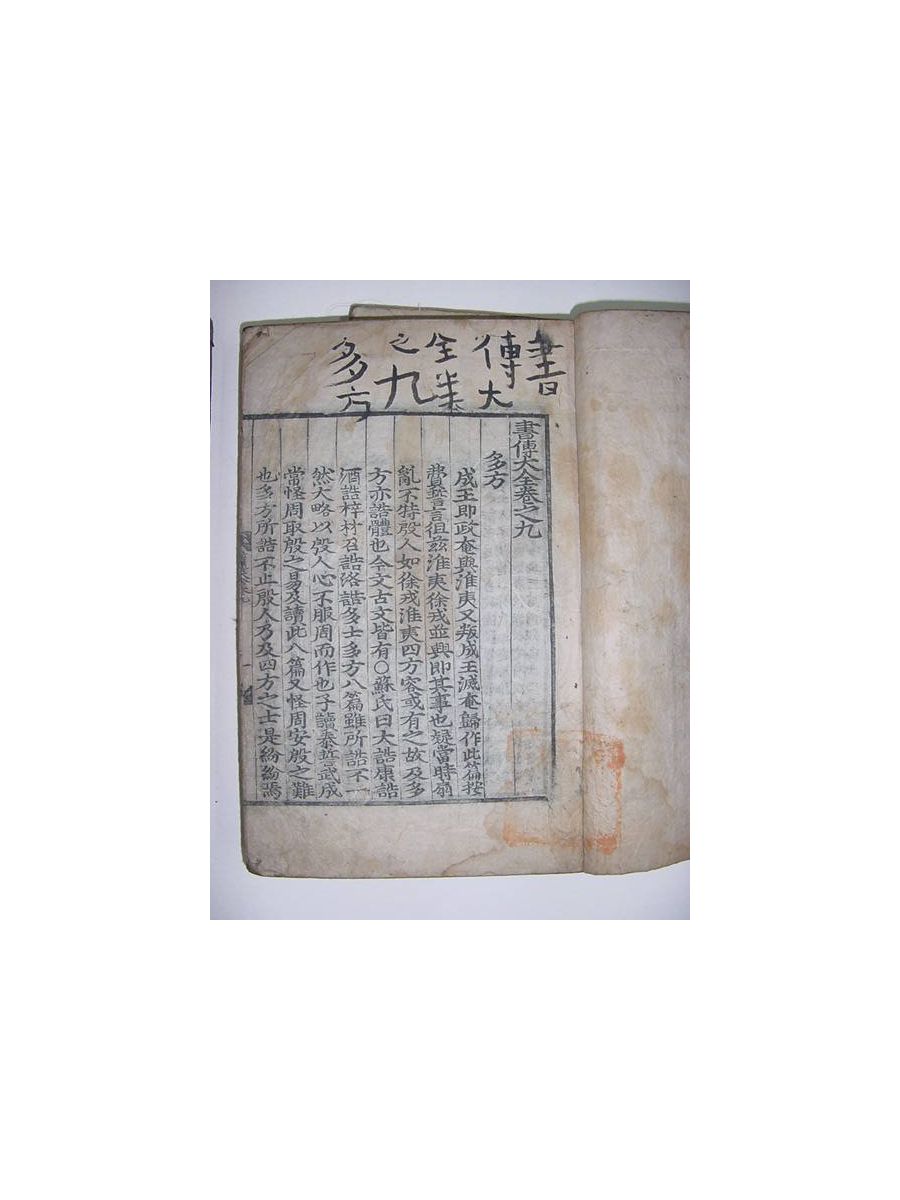 書
傳大
全卷
之九
多方
書傳大全卷之九
多方
成王即政奄與淮夷又叛成王滅奄歸作此篇按
費誓言徂茲淮夷徐戎並興即其事也疑當時扇
亂不特殷人如徐戎淮夷四方容或有之故及多
方亦誥體也今文古文皆有○蘇氏曰大誥康誥
酒誥梓材召誥洛誥多士多方八篇雖所誥不一
然大略以殷人心不服周而作也予讀泰誓武成
常怪周取殷之易及讀此八篇又怪周安殷之難
也多方所誥不止殷人乃及四方之士是紛紛焉